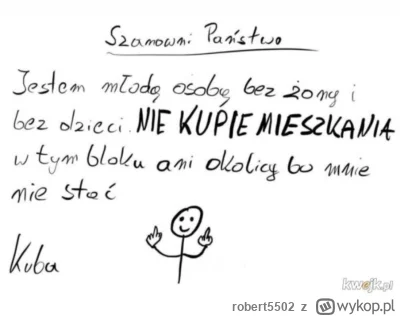 Szanowni Państwo
Jestem młodę osobę bez żony i
bez dzieci. NIE KUPIE MIESZKANIA
w tym bloku ani okolicy bo mnie
nie stać
Kuba
kwejk.pl
robert5502 z wykop.pl